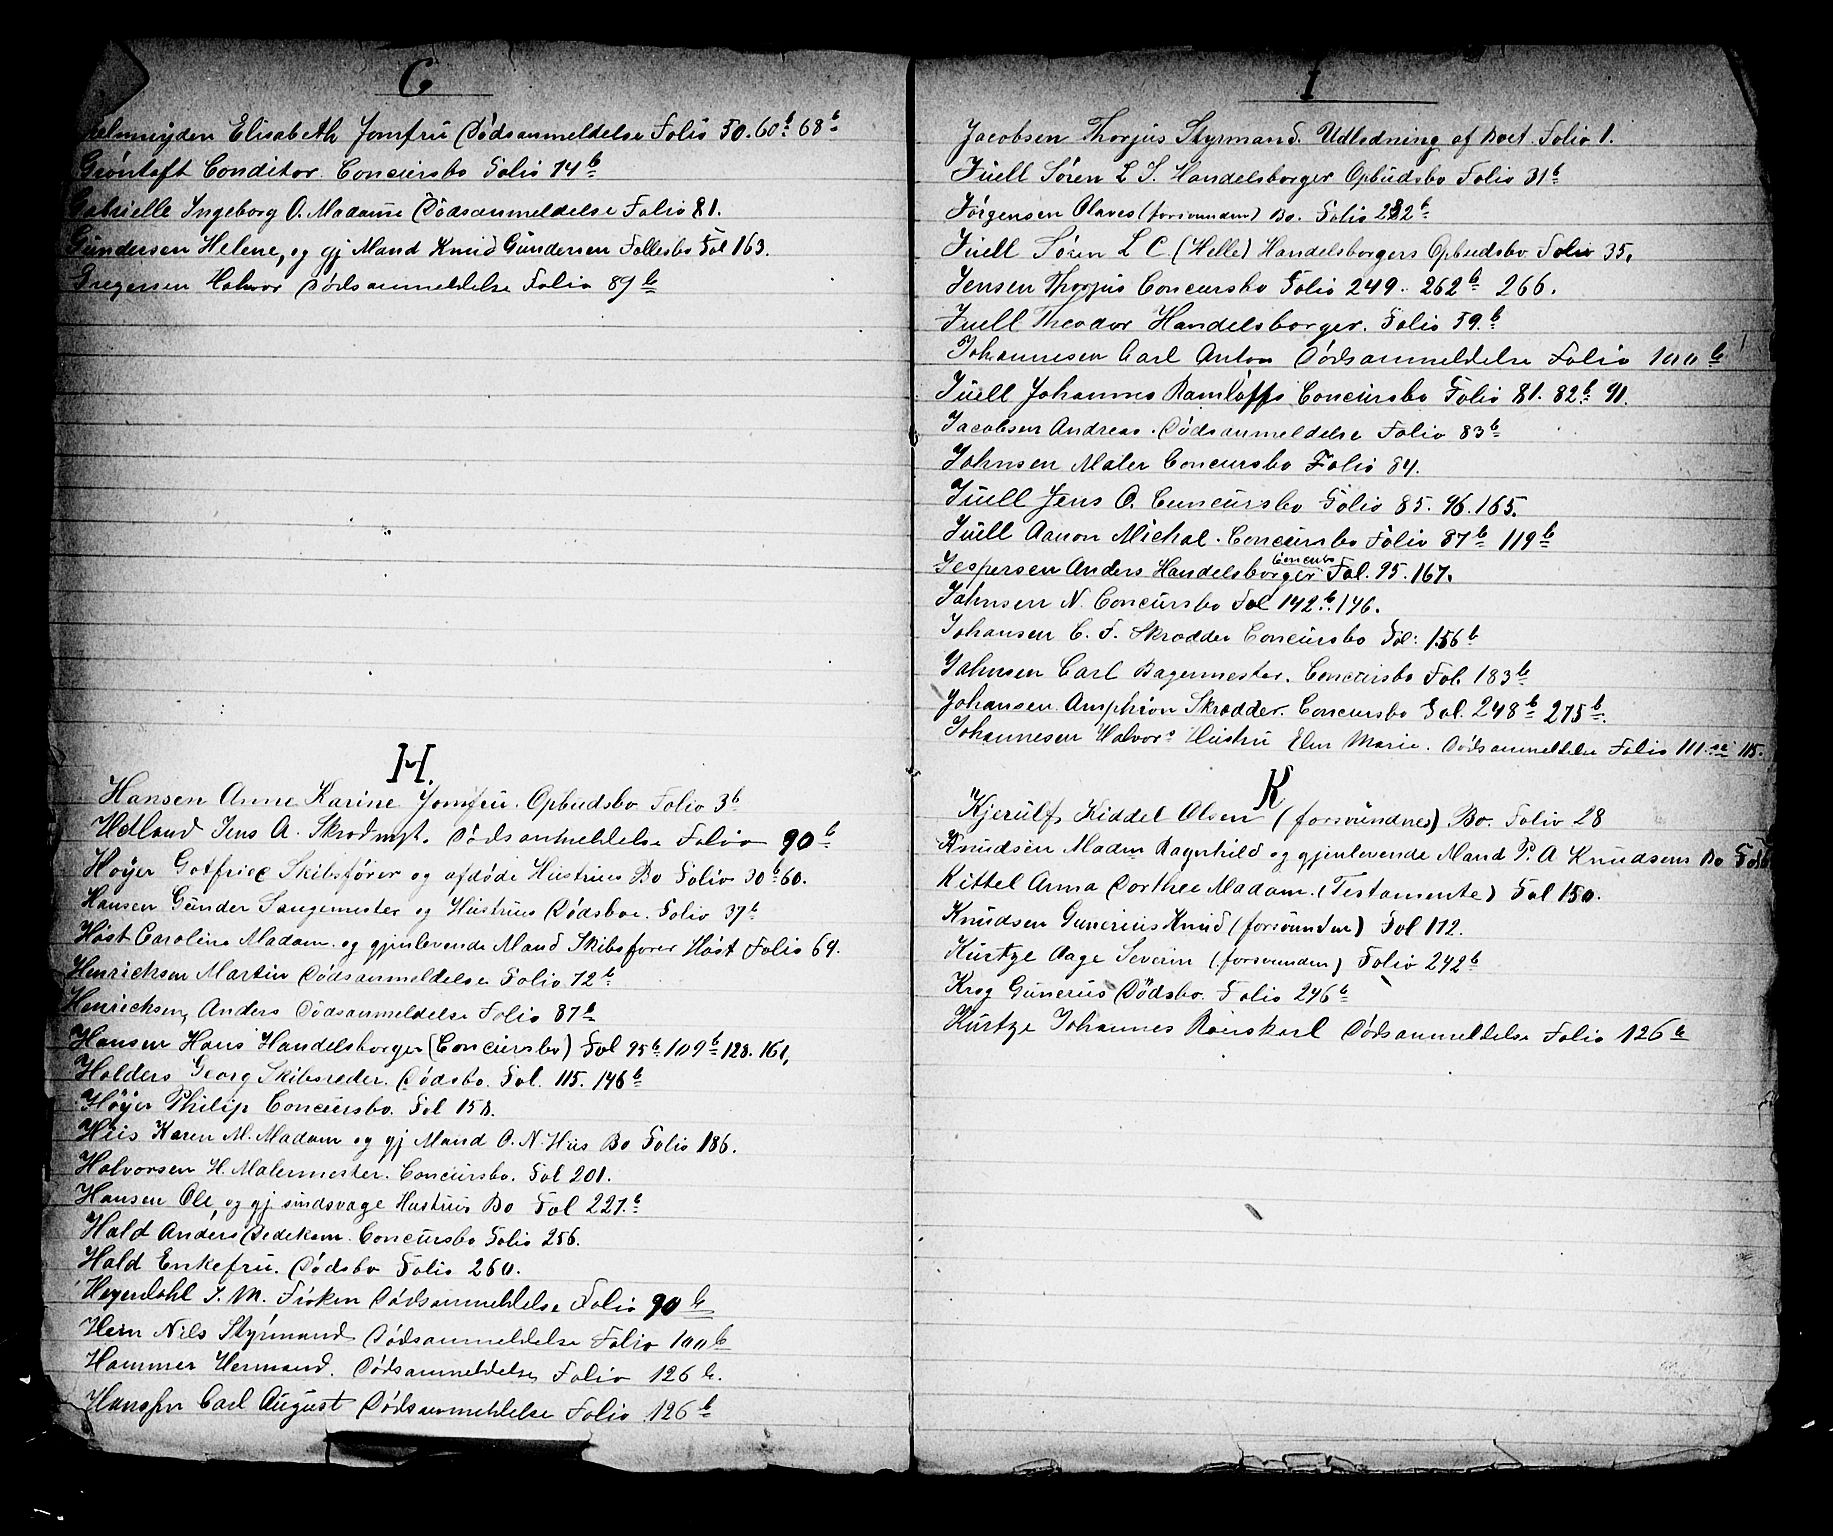 G
Elisabeth Jomfru Dødsanmeldelse Folio 50. 60b 68b
Gröntoft Conditor. Concursbo Folio 74b
Gabrielle Ingeborg O. Madame Dødsanmeldelse Folio 81.
Gundersen Helene, og gj Mand Knud Gundersen Fællesbo Fol 163.
Gregersen Halvor Dødsanmeldelse Folio 89b
H.
Hansen Anne Karine Jomfru. Opbudsbo Folio 3b
Hetland Jens A. Skrædmgt. Dødsanmeldelse Folio 90b
Høÿer Gotfried Skibsfører og afdøde Hustrues Bo Folio 30b 60.
Hansen Gunder Saugemester og Hustrues Dødsboe. Folio 37b
Høst Caroline Madam. og gjenlevende Mand Skibsfører Høst Folio 64.
Henrichsen Martin Dødsanmeldelse Folio 72b
Henrichsen, Anders Dødsanmeldelse Folio 87b
Hansen Hans Handelsborger (Concursbo) Fol 95b 109b 128. 161,
Holders Georg Skibsreder. Dødsbo. Fol. 115. 146b
Høÿer Philip Concursbo. Fol 158.
Huis Karen M. Madam og gj Mand O. N. Huis Bo Folio 186.
Halvorsen H. Malermester. Concursbo. Fol 201.
Hansen Ole, og gj sindsvage Hustrues Bo Fol 227b
Hald Anders Bedekam. Concursbo Folio 256.
Hald Enkefru. Dødsbo Folio 260.
Heyerdahl J. M. Frøken Dødsanmeldelse Folio 90b
Hein Nils Styrmand Dødsanmeldelse Folio 100b
Hammer Hermand. Dødsanmeldelse Folio 126b.
Hansen Carl August Dødsanmeldelse Folio 126b
I
Jacobsen Thorjus Styrmand. Udlodning af Boet. Folio 1.
Juell Søren L. S. Handelsborger Opbudsbo Folio 31b
Jørgensen Olaves (forsvunden) Bo. Folio 282b
Juell Søren L C (Helle) Handelsborgers Opbudsbo Folio 35.
Jensen Thorjus Concursbo Folio 249. 262b 266.
Juell Theodor Handelsborger. Folio 59.b
Johannesen Carl Anton Dødsanmeldelse Folio 100b
Juell Johannes Ramløffs Concursbo Folio 81. 82b 91.
Jacobsen Andreas. Dødsanmeldelse Folio 83b
Johnsen Maler Concursbo Folio 84.
Juell Jens O. Concursbo Folio 85. 96. 165.
Juell Aanon Michal. Concursbo Folio 87b 119b
Jespersen Anders Handelsborger Concursbo Fol. 95. 167.
Johnsen N. Concursbo Fol 142b 146.
Johansen C. F. Skrædder Concursbo Fol: 156b
Johnsen Carl Bagermester. Concursbo Fol. 183b
Johansen Amphion Skrædder. Concursbo Fol. 248b 275b.
Johannesen Halvors Hustru Elen Marie. Dødsanmeldelse Folio 111 115.
K
Kjerulf, Kiddel Olsen (forsvundnes) Bo. Folio 28
Knudsen Madm Ragnhild og gjenlevende Mand P. A Knudsens Bo Fol
Kittel Anna Dorthee Madam. (Testamente) Fol 150.
Knudsen Gunerius Knud (forsvunden) Fol 172.
Kurtze Aage Severin (forsvunden) Folio 242b
Krog Gunerus Dødsbo. Folio 246b
Kurtze Johannes Dødsanmeldelse Folio 126b